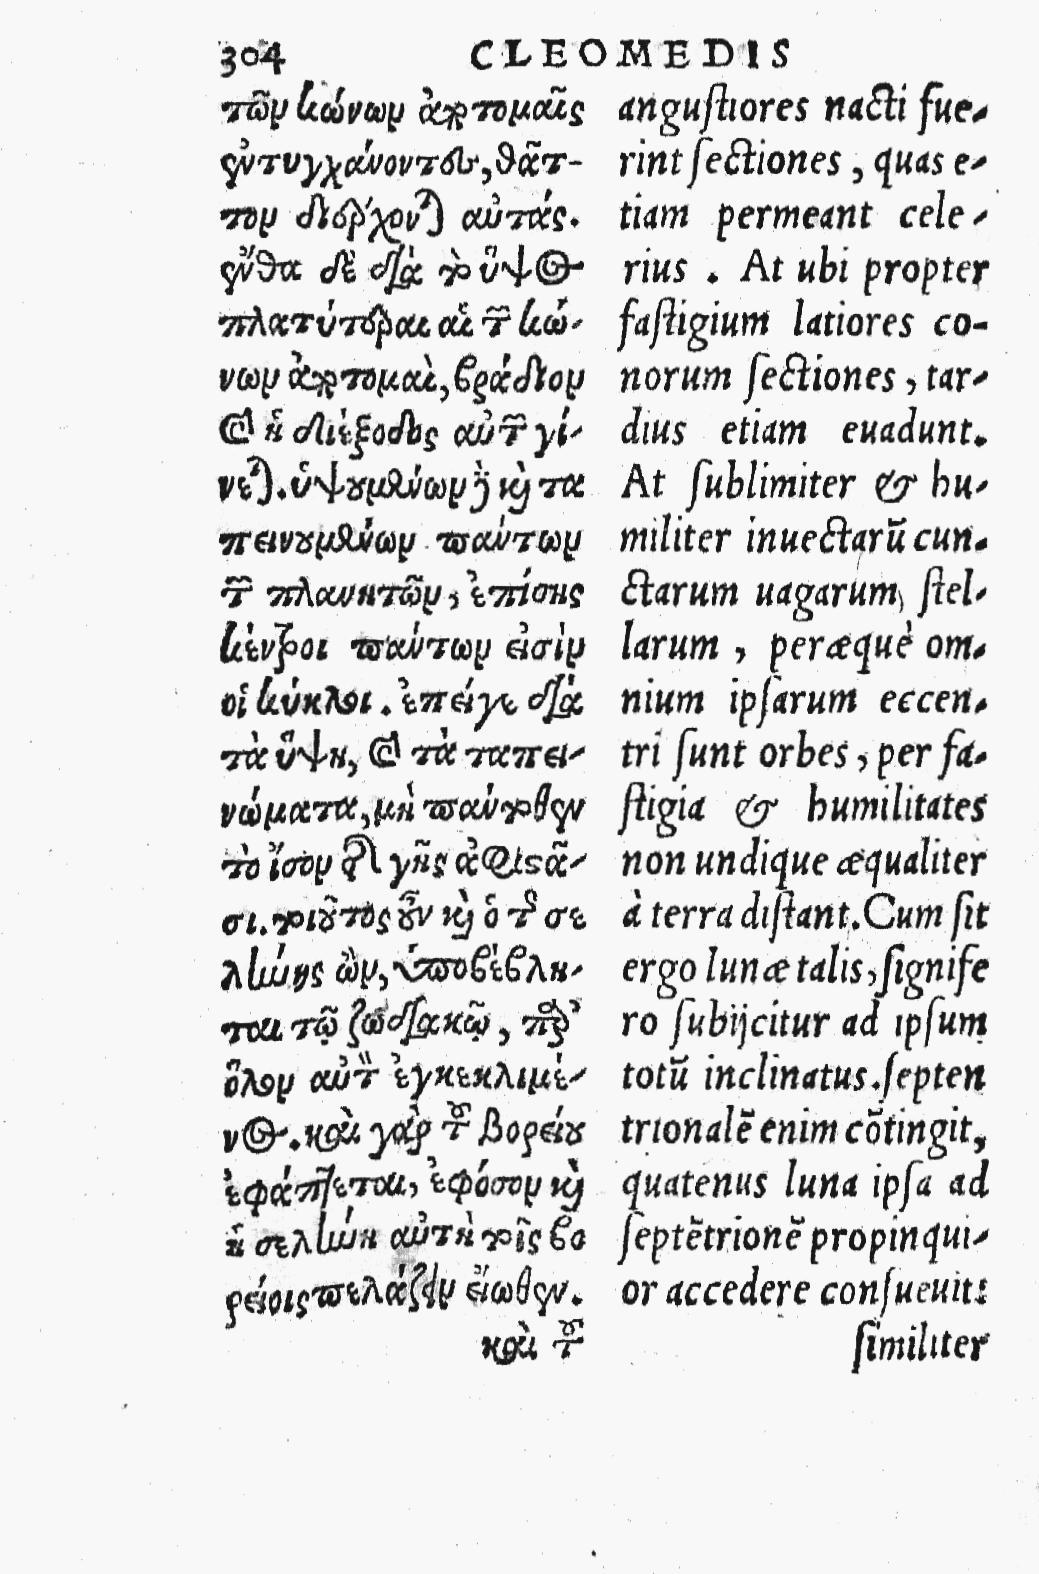 304 CLEOMEDIS
τῶν κώνων ἀποτομαῖς
ἐντυγχάνοντες, θᾶτ-
τον διέρχονται αὐτάς.
ἔνθα δὲ διὰ τὸ ὕψος
πλατύτεραι αἱ τῶν κώ-
νων ἀποτομαὶ, βράδιον
καὶ ἡ διέξοδος αὐτῶν γί-
νεται. ὑψουμένων δὲ καὶ τα
πεινουμένων πάντων
τῶν πλανητῶν, ἐπίσης
κέντροι πάντων εἰσὶν
οἱ κύκλοι. ἐπείγε διὰ
τὰ ὕψη, καὶ τὰ ταπει-
νώματα, μὴ πανταχόθεν
τὸ ἴσον τῆς γῆς ἀφιστᾶ-
σι. τοιοῦτος οὖν καὶ ὁ τῆς σε
λήνης ὢν, ὑποβέβλη-
ται τῷ ζωδιακῷ, πρὸς
ὅλον αὐτὸν ἐγκεκλιμέ-
νος. καὶ γὰρ τοῦ βορείου
ἐφάπτεται, ἐφόσον καὶ
ἡ σελήνη αὐτὴ τοῖς βο
ρείοις πελάζειν εἴωθεν.
καὶ τοῦ
angustiores nacti fue-
rint sectiones, quas e-
tiam permeant cele-
rius. At ubi propter
fastigium latiores co-
norum sectiones, tar-
dius etiam euadunt.
At sublimiter & hu-
militer inuectarũ cun-
ctarum uagarum, stel-
larum, peræquè om-
nium ipsarum eccen-
tri sunt orbes, per fa-
stigia & humilitates
non undique æqualiter
à terra distant. Cum sit
ergo lunæ talis, signife
ro subijcitur ad ipsum
totũ inclinatus. septen
trionalẽ enim cõtingit,
quatenus luna ipsa ad
septẽtrionẽ propinqui-
or accedere consueuit:
similiter